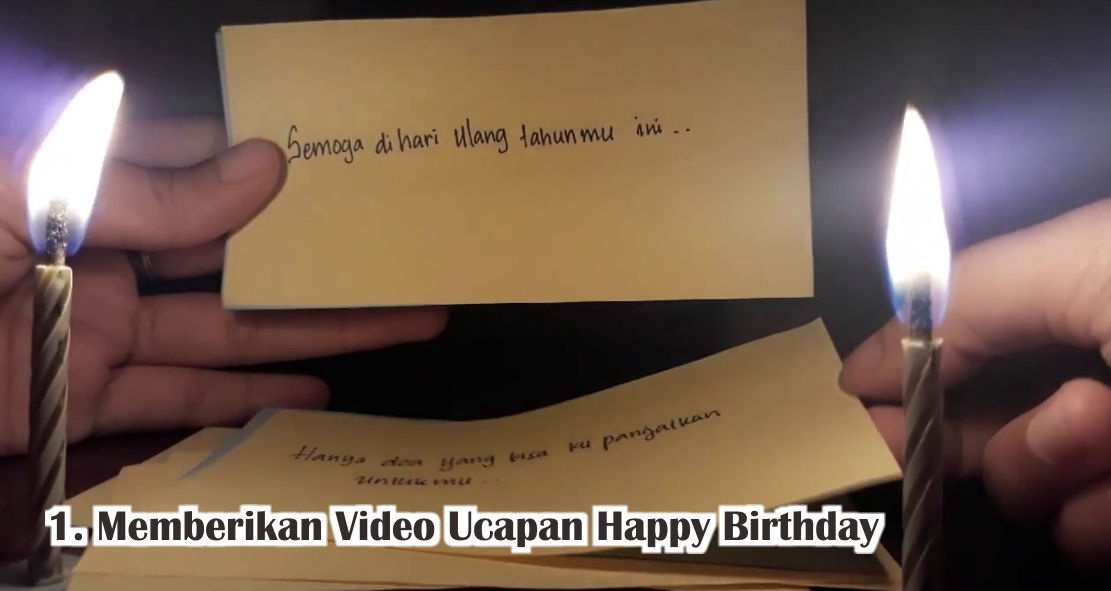 Semoga di hari Ulang tahunmu ini..
Hanya doa yang bisa ku panjatkan
untukmu..
1. Memberikan Video Ucapan Happy Birthday